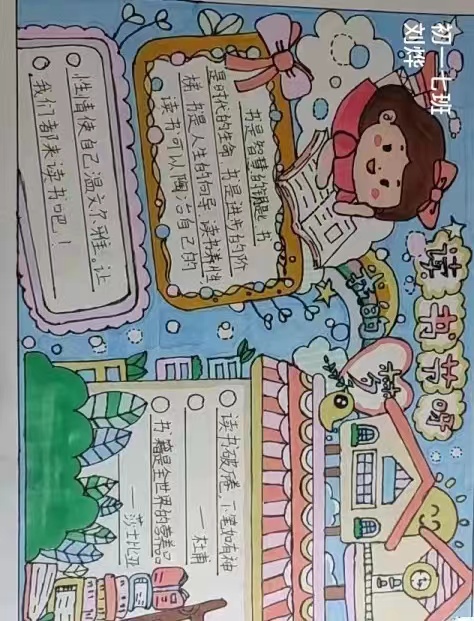 初一七班
刘烨
读书节呀
书是智慧的钥匙 书
是时代的生命 书是进步的阶
梯 书是人生的向导 读书养性
读书可以陶冶自己的
性情使自己温文尔雅。让
我们都来读书吧！
读书破万卷，下笔如有神
—杜甫
书籍是全世界的营养品
—莎士比亚